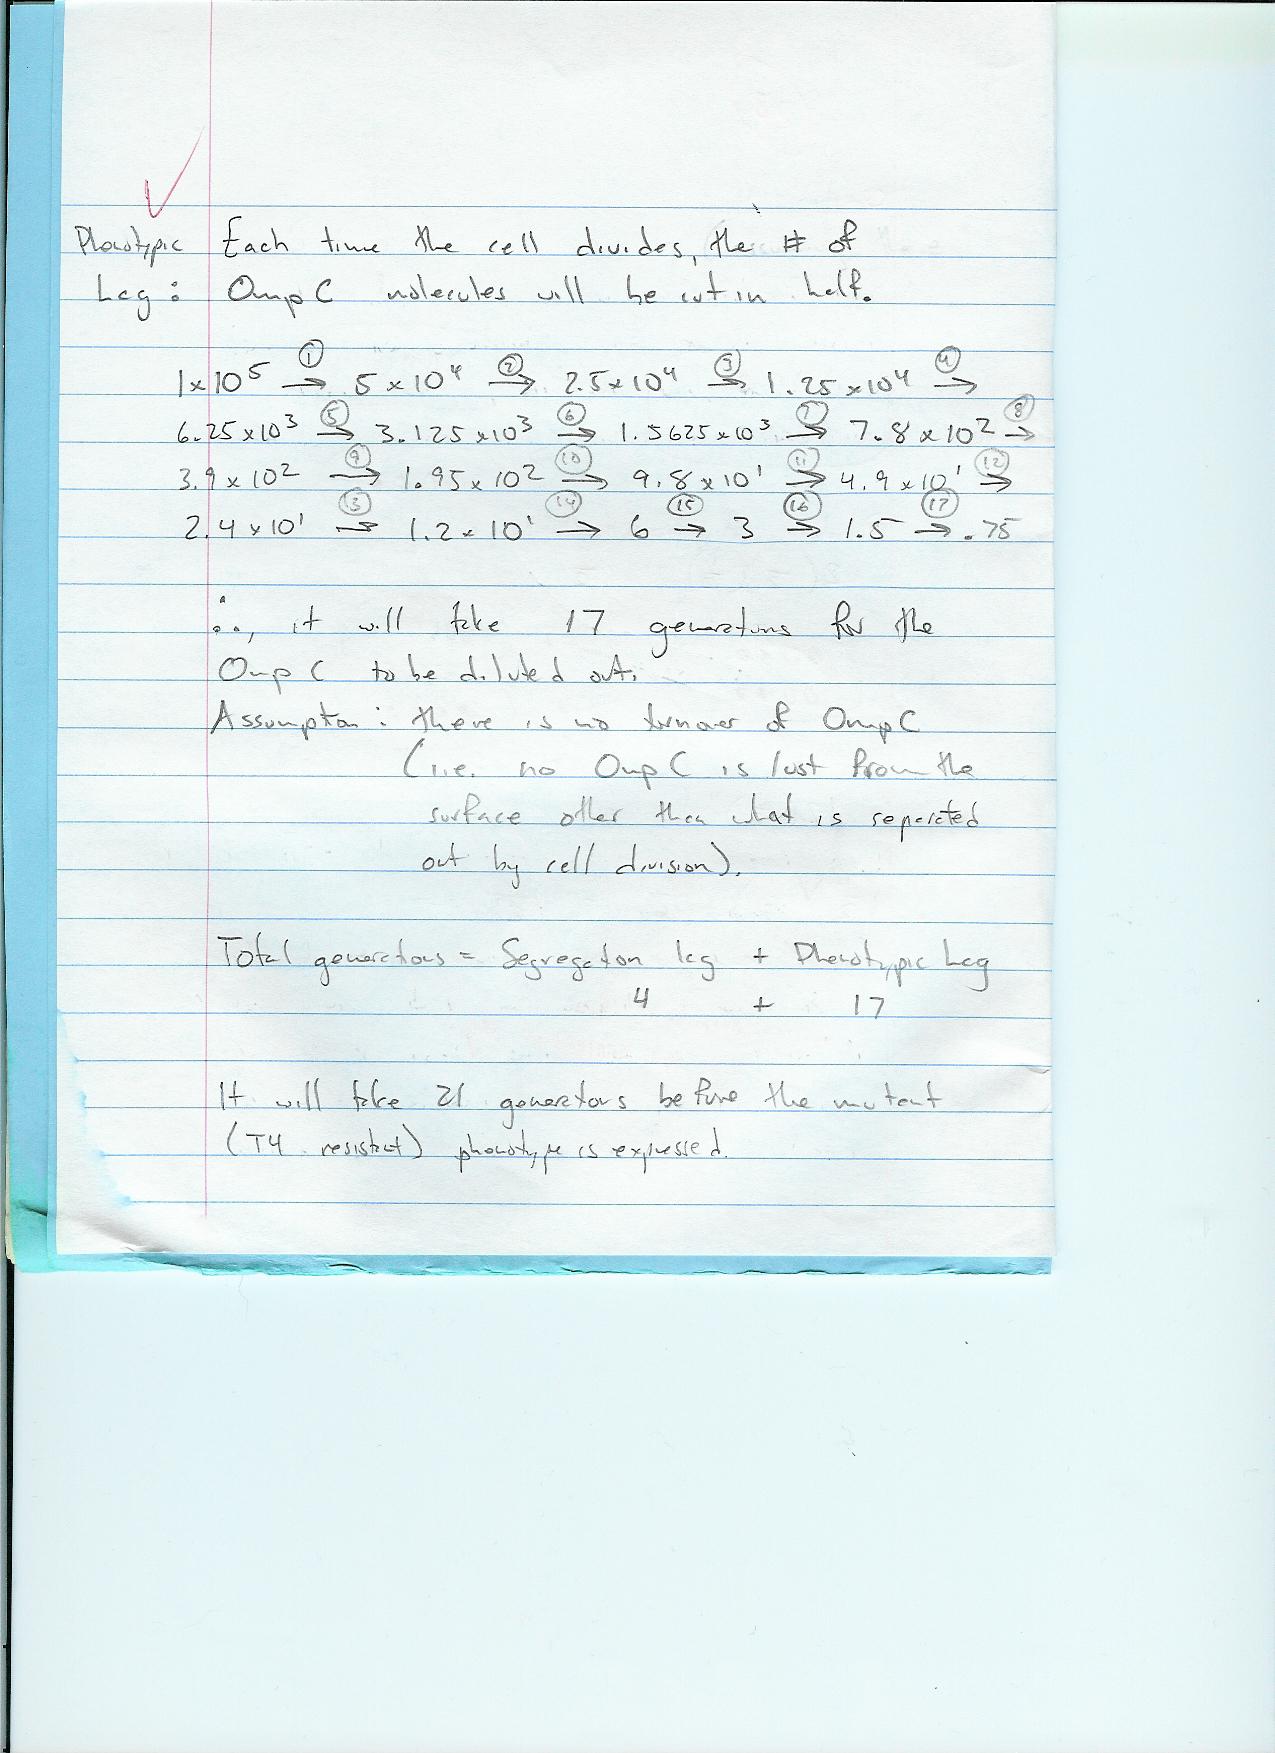 Phenotypic Each time the cell divides, the # of
Lag: OmpC molecules will be cut in half.
1×10⁵ →① 5×10⁴ →② 2.5×10⁴ →③ 1.25×10⁴ →④
6.25×10³ →⑤ 3.125×10³ →⑥ 1.5625×10³ →⑦ 7.8×10² →⑧
3.9×10² →⑨ 1.95×10² →⑩ 9.8×10¹ →⑪ 4.9×10¹ →⑫
2.4×10¹ →⑬ 1.2×10¹ →⑭ 6 →⑮ 3 →⑯ 1.5 →⑰ .75
∴, it will take 17 generations for the
OmpC to be diluted out.
Assumption: there is no turnover of OmpC
(i.e. no OmpC is lost from the
surface other than what is separated
out by cell division).
Total generations = Segregation lag + Phenotypic Lag
4 + 17
It will take 21 generations before the mutant
(T4 resistant) phenotype is expressed.